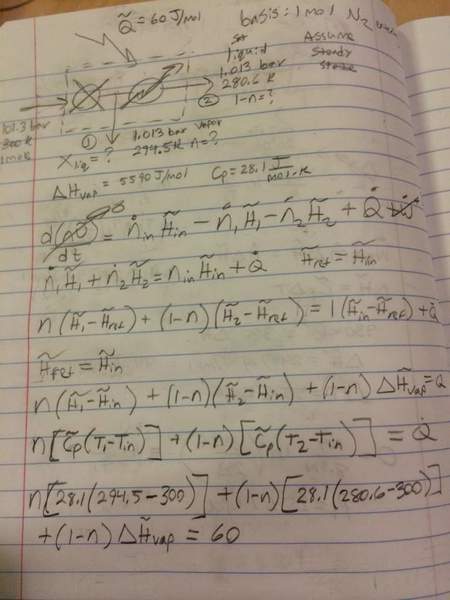 Q̃ = 60 J/mol
basis: 1 mol N₂
liquid
Assume
steady
state
1.013 bar
280.6 K
② 1-n=?
101.3 bar
300 K
1 mol
① 1.013 bar vapor
294.5 K n=?
X_liq = ?
ΔH_vap = 5590 J/mol C̃p = 28.1 J/mol·K
d(nŨ)/dt = ṅ_in H̃_in − ṅ₁H̃₁ − ṅ₂H̃₂ + Q̇ + Ẇ
ṅ₁H̃₁ + ṅ₂H̃₂ = ṅ_in H̃_in + Q̇ H̃_ref = H̃_in
n(H̃₁−H̃_ref) + (1−n)(H̃₂−H̃_ref) = 1(H̃_in−H̃_ref) + Q̇
H̃_ref = H̃_in
n(H̃₁−H̃_in) + (1−n)(H̃₂−H̃_in) + (1−n)ΔH̃_vap = Q
n[C̃p(T₁−T_in)] + (1−n)[C̃p(T₂−T_in)] = Q̇
n[28.1(294.5−300)] + (1−n)[28.1(280.6−300)]
+ (1−n)ΔH̃_vap = 60